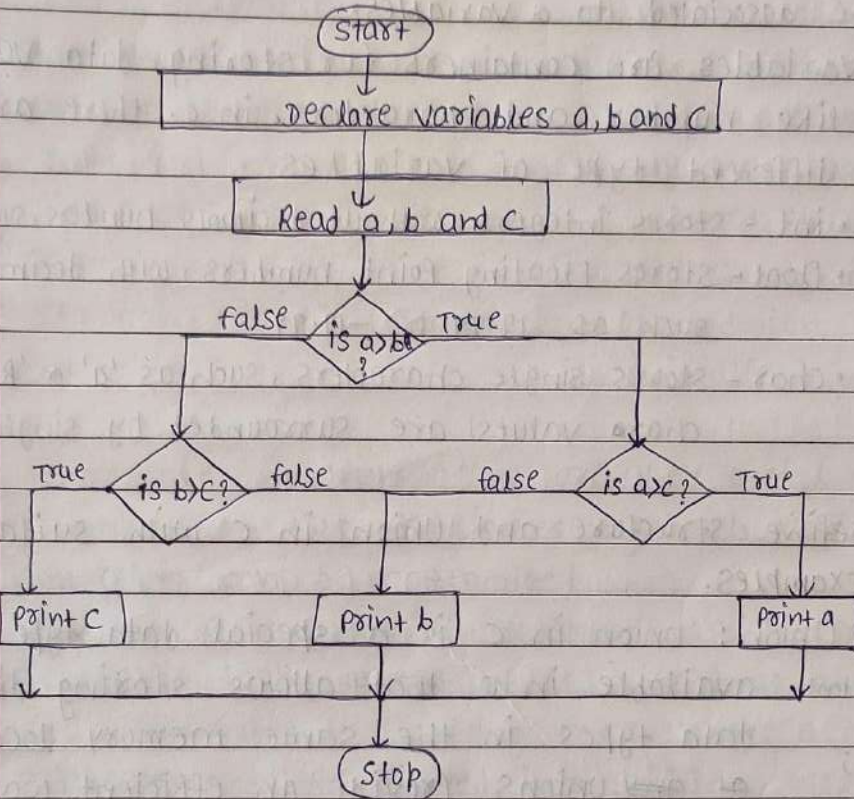 Start
Declare variables a, b and c
Read a, b and c
false
is a>b
?
True
True
is b>c?
false
false
is a>c?
True
print c
print b
print a
Stop